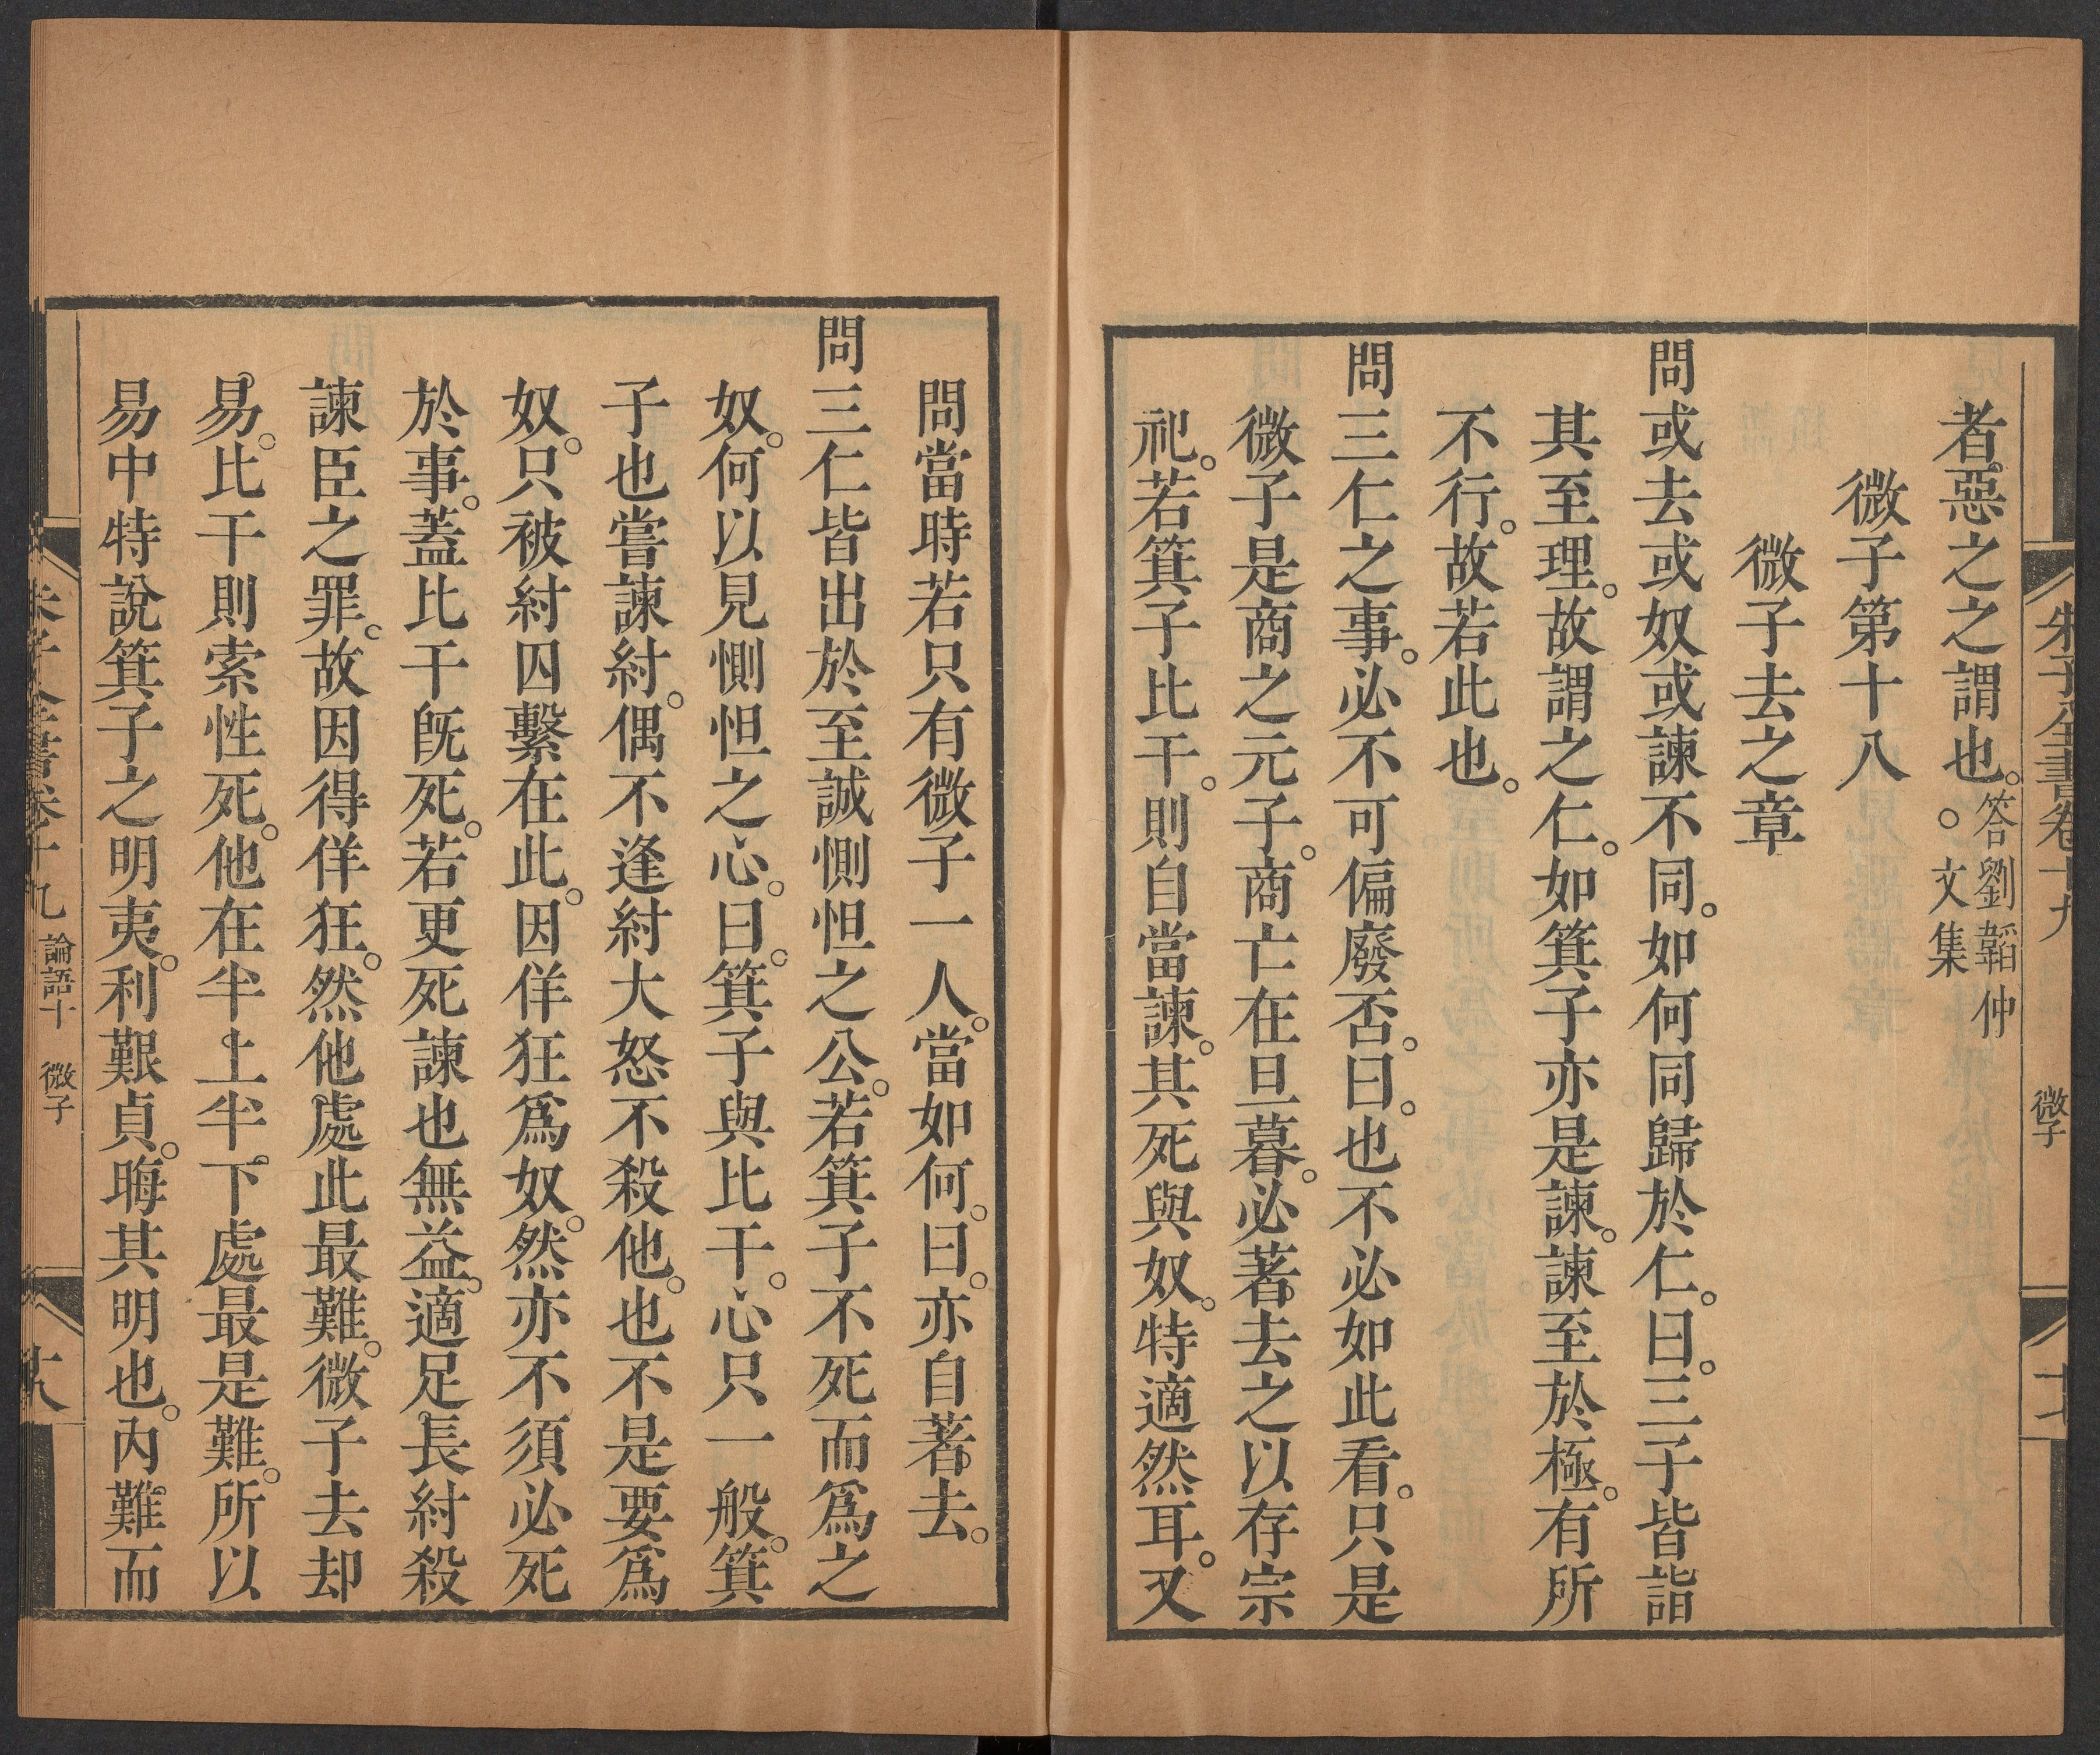 朱子全書卷十九
微子
者惡之之謂也。答劉韜仲
文集
微子第十八
微子去之章
問或去或奴或諫不同。如何同歸於仁。曰。三子皆詣
其至理。故謂之仁。如箕子亦是諫。諫至於極。有所
不行。故若此也。
問三仁之事。必不可偏廢否。曰。也不必如此看。只是
微子是商之元子。商亡在旦暮。必著去之以存宗
祀。若箕子比干。則自當諫。其死與奴。特適然耳。又
問當時若只有微子一人。當如何。曰。亦自著去。
問三仁皆出於至誠惻怛之公。若箕子不死而爲之
奴。何以見惻怛之心。曰。箕子與比干。心只一般。箕
子也嘗諫紂。偶不逢紂大怒不殺他。也不是要爲
奴。只被紂囚繫在此。因佯狂爲奴。然亦不須必死
於事。蓋比干旣死。若更死諫也無益。適足長紂殺
諫臣之罪。故因得佯狂。然他處此最難。微子去却
易。比干則索性死。他在半上半下處最是難。所以
易中特說箕子之明夷。利艱貞。晦其明也。內難而
朱子全書卷十九 論語十 微子
十八